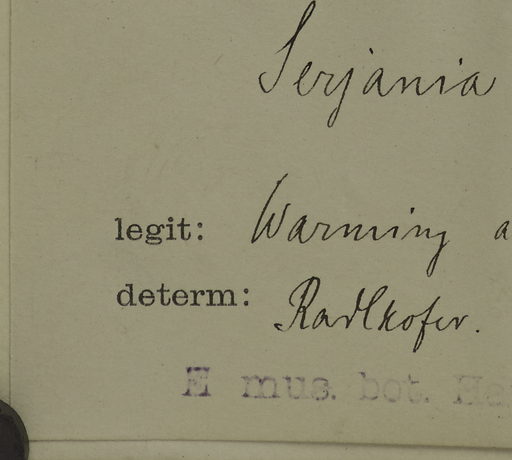 Serjania
legit: Warming a
determ: Radlkofer.
E mus. bot. Ha